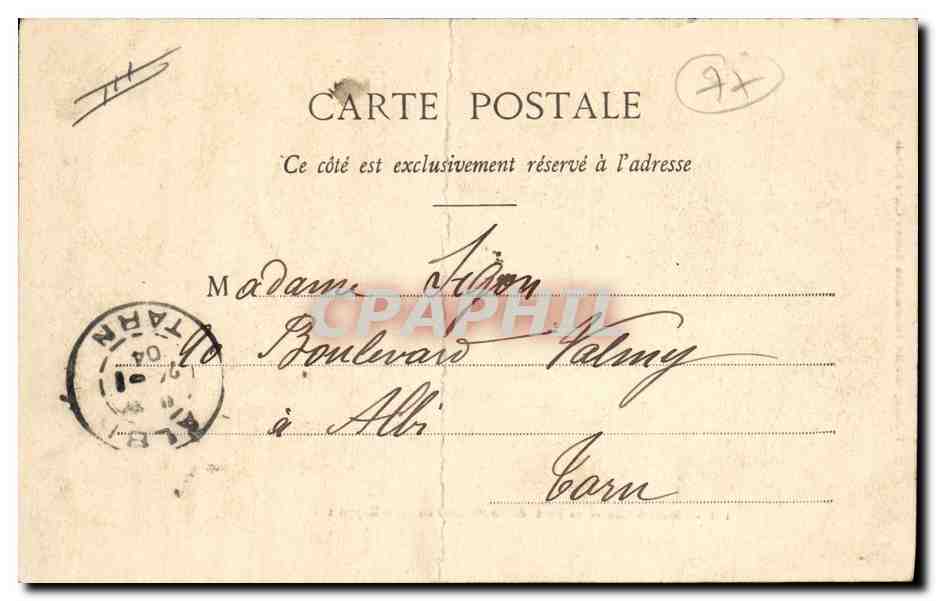 77
CARTE POSTALE
Ce côté est exclusivement réservé à l'adresse
Madame Sigon
CPARPHIL
90 Boulevard Valmy
à Albi
Tarn
ALBI
TARN
04